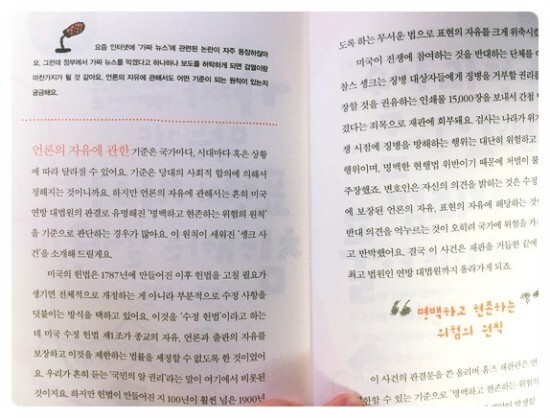 요즘 인터넷에 '가짜 뉴스'에 관련된 논란이 자주 등장하잖아
요. 그런데 정부에서 가짜 뉴스를 막겠다고 하나하나 보도를 허락하게 되면 검열이랑
마찬가지가 될 것 같아요. 언론의 자유에 관해서도 어떤 기준이 되는 원칙이 있는지
궁금해요.
언론의 자유에 관한 기준은 국가마다, 시대마다 혹은 상황
에 따라 달라질 수 있어요. 기준은 당대의 사회적 합의에 의해서
정해지는 것이니까요. 하지만 언론의 자유에 관해서는 흔히 미국
연방 대법원의 판결로 유명해진 '명백하고 현존하는 위험의 원칙'
을 기준으로 판단하는 경우가 많아요. 이 원칙이 세워진 '솅크 사
건'을 소개해 드릴게요.
미국의 헌법은 1787년에 만들어진 이후 헌법을 고칠 필요가
생기면 전체적으로 개정하는 게 아니라 부분적으로 수정 사항을
덧붙이는 방식을 택하고 있어요. 이것을 '수정 헌법'이라고 하는
데 미국 수정 헌법 제1조가 종교의 자유, 언론과 출판의 자유를
보장하고 이것을 제한하는 법률을 제정할 수 없도록 한 것이었어
요. 우리가 흔히 듣는 '국민의 알 권리'라는 말이 여기에서 비롯된
것이지요. 하지만 헌법이 만들어진 지 100년이 훨씬 넘은 1900년
도록 하는 무서운 법으로 표현의 자유를 크게 위축시
미국이 전쟁에 참여하는 것을 반대하는 단체를
찰스 솅크는 징병 대상자들에게 징병을 거부할 권리를
장할 것을 권유하는 인쇄물 15,000장을 보내서 간첩
겼다는 죄목으로 재판에 회부돼요. 검사는 나라가 위기
쟁 시점에 징병을 방해하는 행위는 대단히 위험하고
행위이며, 명백한 현행법 위반이기 때문에 처벌이 불
주장했죠. 변호인은 자신의 의견을 밝히는 것은 수정
에 보장된 언론의 자유, 표현의 자유에 해당하는 것
반대 의견을 억누르는 것이 오히려 국가에 위험을 가
고 반박했어요. 결국 이 사건은 재판을 거듭한 끝에
최고 법원인 연방 대법원까지 올라가게 되죠.
명백하고 현존하는
위험의 원칙
이 사건의 판결문을 쓴 올리버 홈즈 재판관은 언
할 수 있는 기준으로 '명백하고 현존하는 위험의